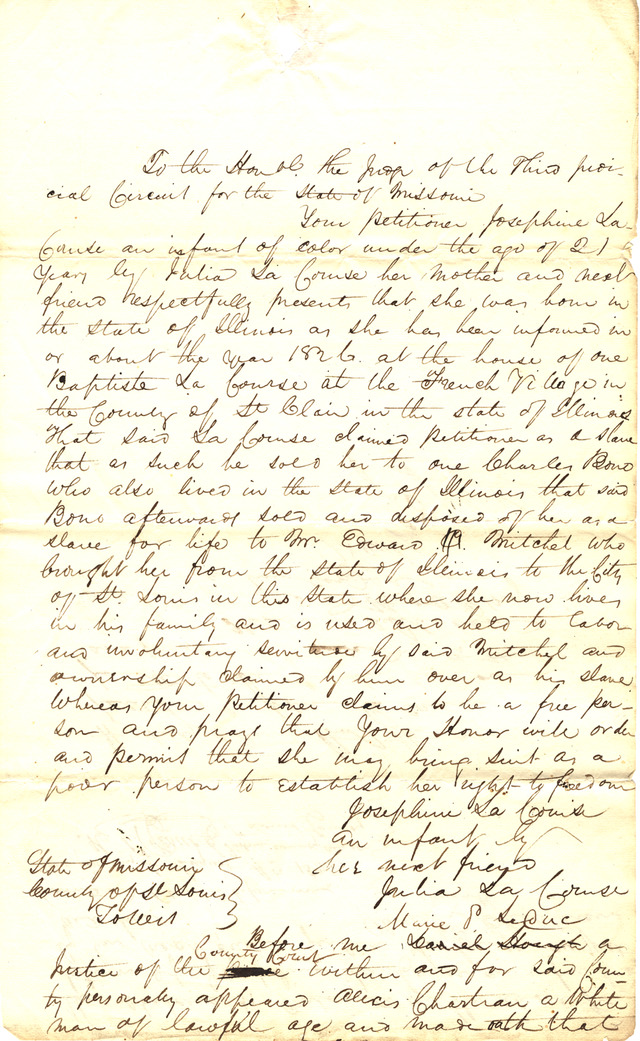 To the Honbl. the Judge of the Third judi-
cial Circuit for the State of Missouri
Your Petitioner Josephine La
Course an infant of color under the age of 21
years by Julia La Course her mother and next
friend respectfully presents that she was born in
the state of Illinois as she has been informed in
or about the year 1826. at the house of one
Baptiste La Course at the French Village in
the County of St Clair in the state of Illinois
That said La Course claimed Petitioner as a slave
that as such he sold her to one Charles Bono
who also lived in the state of Illinois that said
Bono afterwards sold and disposed of her as a
slave for life to Mr. Edward Mitchel who
brought her from the state of Illinois to the City
of St. Louis in this state where she now lives
in his family and is used and held to labor
and involuntary servitude by said Mitchel and
ownership claimed by him over as his slave
Whereas your Petitioner claims to be a free per-
son and prays that Your Honor will order
and permit that she may bring suit as a
poor person to establish her right to freedom
Josephine La Course
an infant by
her next friend
Julia La Course
State of Missouri
County of St Louis
To Wit
Marie P. Leduc
Before me a
Justice of the County Court within and for said Coun-
ty personally appeared Alexis Chartran a White
man of lawful age and made oath that